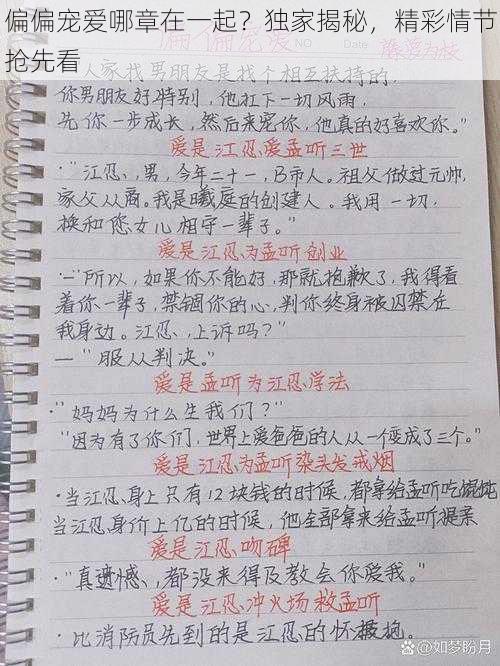 偏偏宠爱哪章在一起？独家揭秘，精彩情节
抢先看
偏偏宠爱
藤萝为枝
人家找男朋友是找个相互扶持的，
你男朋友好特别，他扛下一切风雨，
先你一步成长，然后来宠你，他真的好喜欢你。"
爱是江忍爱孟听三世
·"江忍，男，今年二十一，B市人。祖父做过元帅，
家父从商。我是曦庭的创建人。我用一切，
换和您女儿相守一辈子。"
爱是江忍为孟听创业
·一"所以，如果你不能好，那就抱歉了，我得看
着你一辈子，禁锢你的心，判你终身被囚禁在
我身边。江忍，上诉吗？"
一"服从判决。"
爱是孟听为江忍学法
·"妈妈为什么生我们？"
"因为有了你们，世界上爱爸爸的人从一个变成了三个。"
爱是江忍为孟听染头发戒烟
·当江忍身上只有12块钱的时候，都拿给孟听吃馄饨
当江忍身价上亿的时候，他全部拿来给孟听提亲
爱是江忍吻碑
·"真遗憾，都没来得及教会你爱我。"
爱是江忍冲火场救孟听
·比消防员先到的是江忍的怀抱。
@如梦盼月